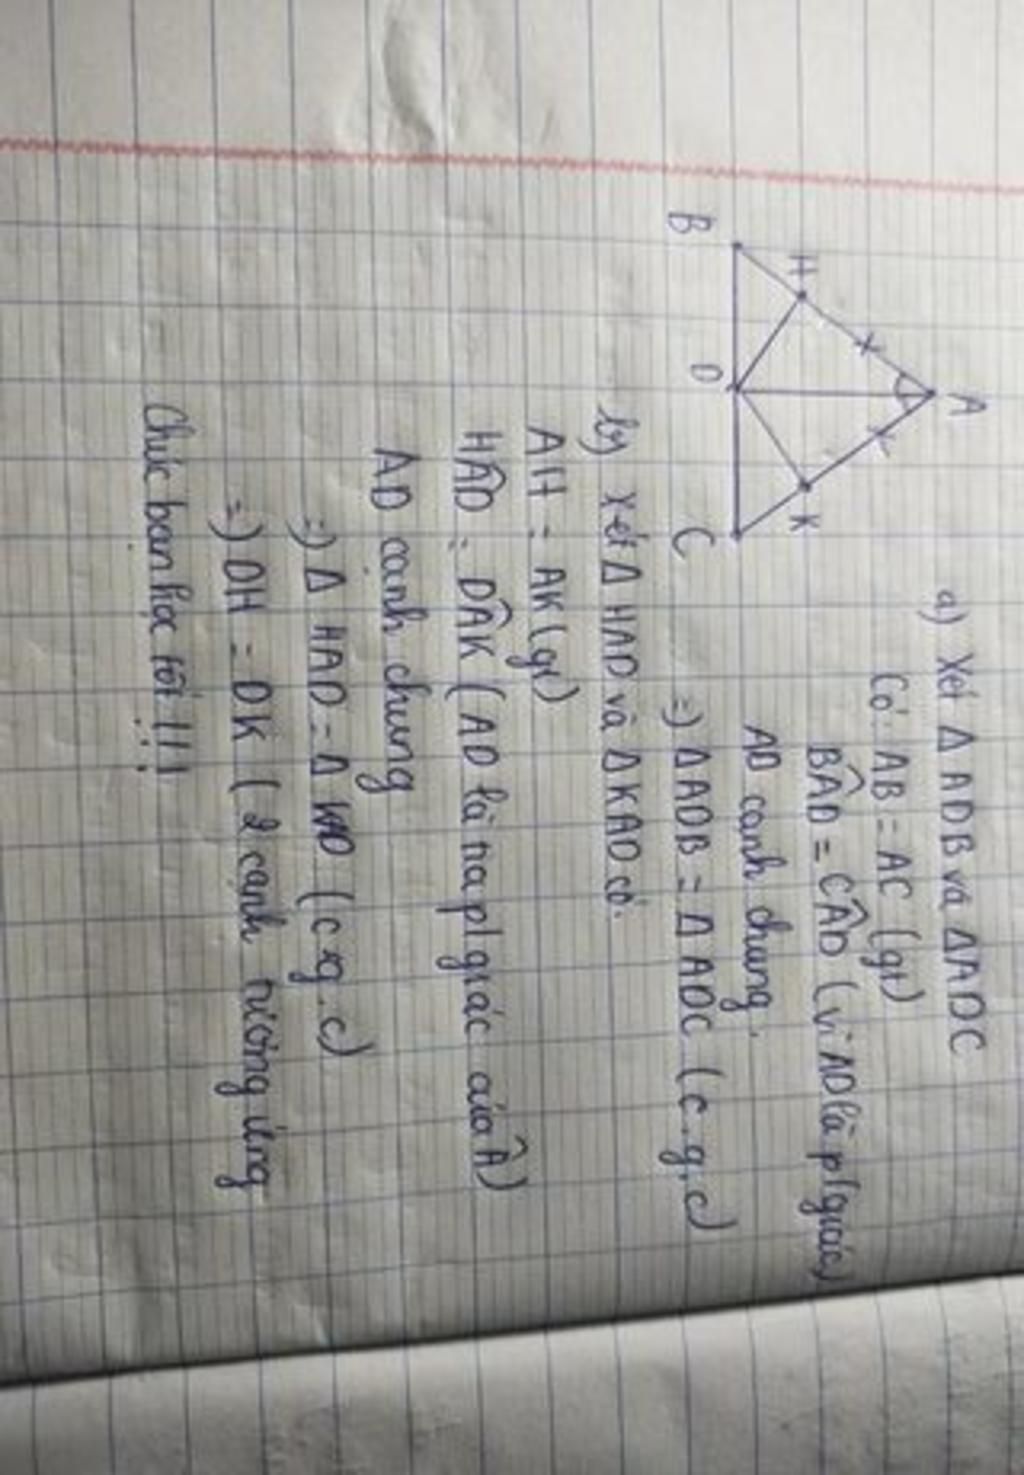 A
H
K
B
D
C
a) Xét Δ ADB và ΔADC
Có: AB = AC (gt)
BÂD = CÂD (vì AD là p/giác)
AD cạnh chung.
=) ΔADB = Δ ADC (c.g.c)
b) Xét Δ HAD và ΔKAD có:
AH = AK (gt)
HÂD = DÂK (AD là tia p/giác của Â)
AD cạnh chung
=) Δ HAD = Δ KAD (c.g.c)
=) DH = DK (2 cạnh tương ứng
Chúc bạn học tốt !!!